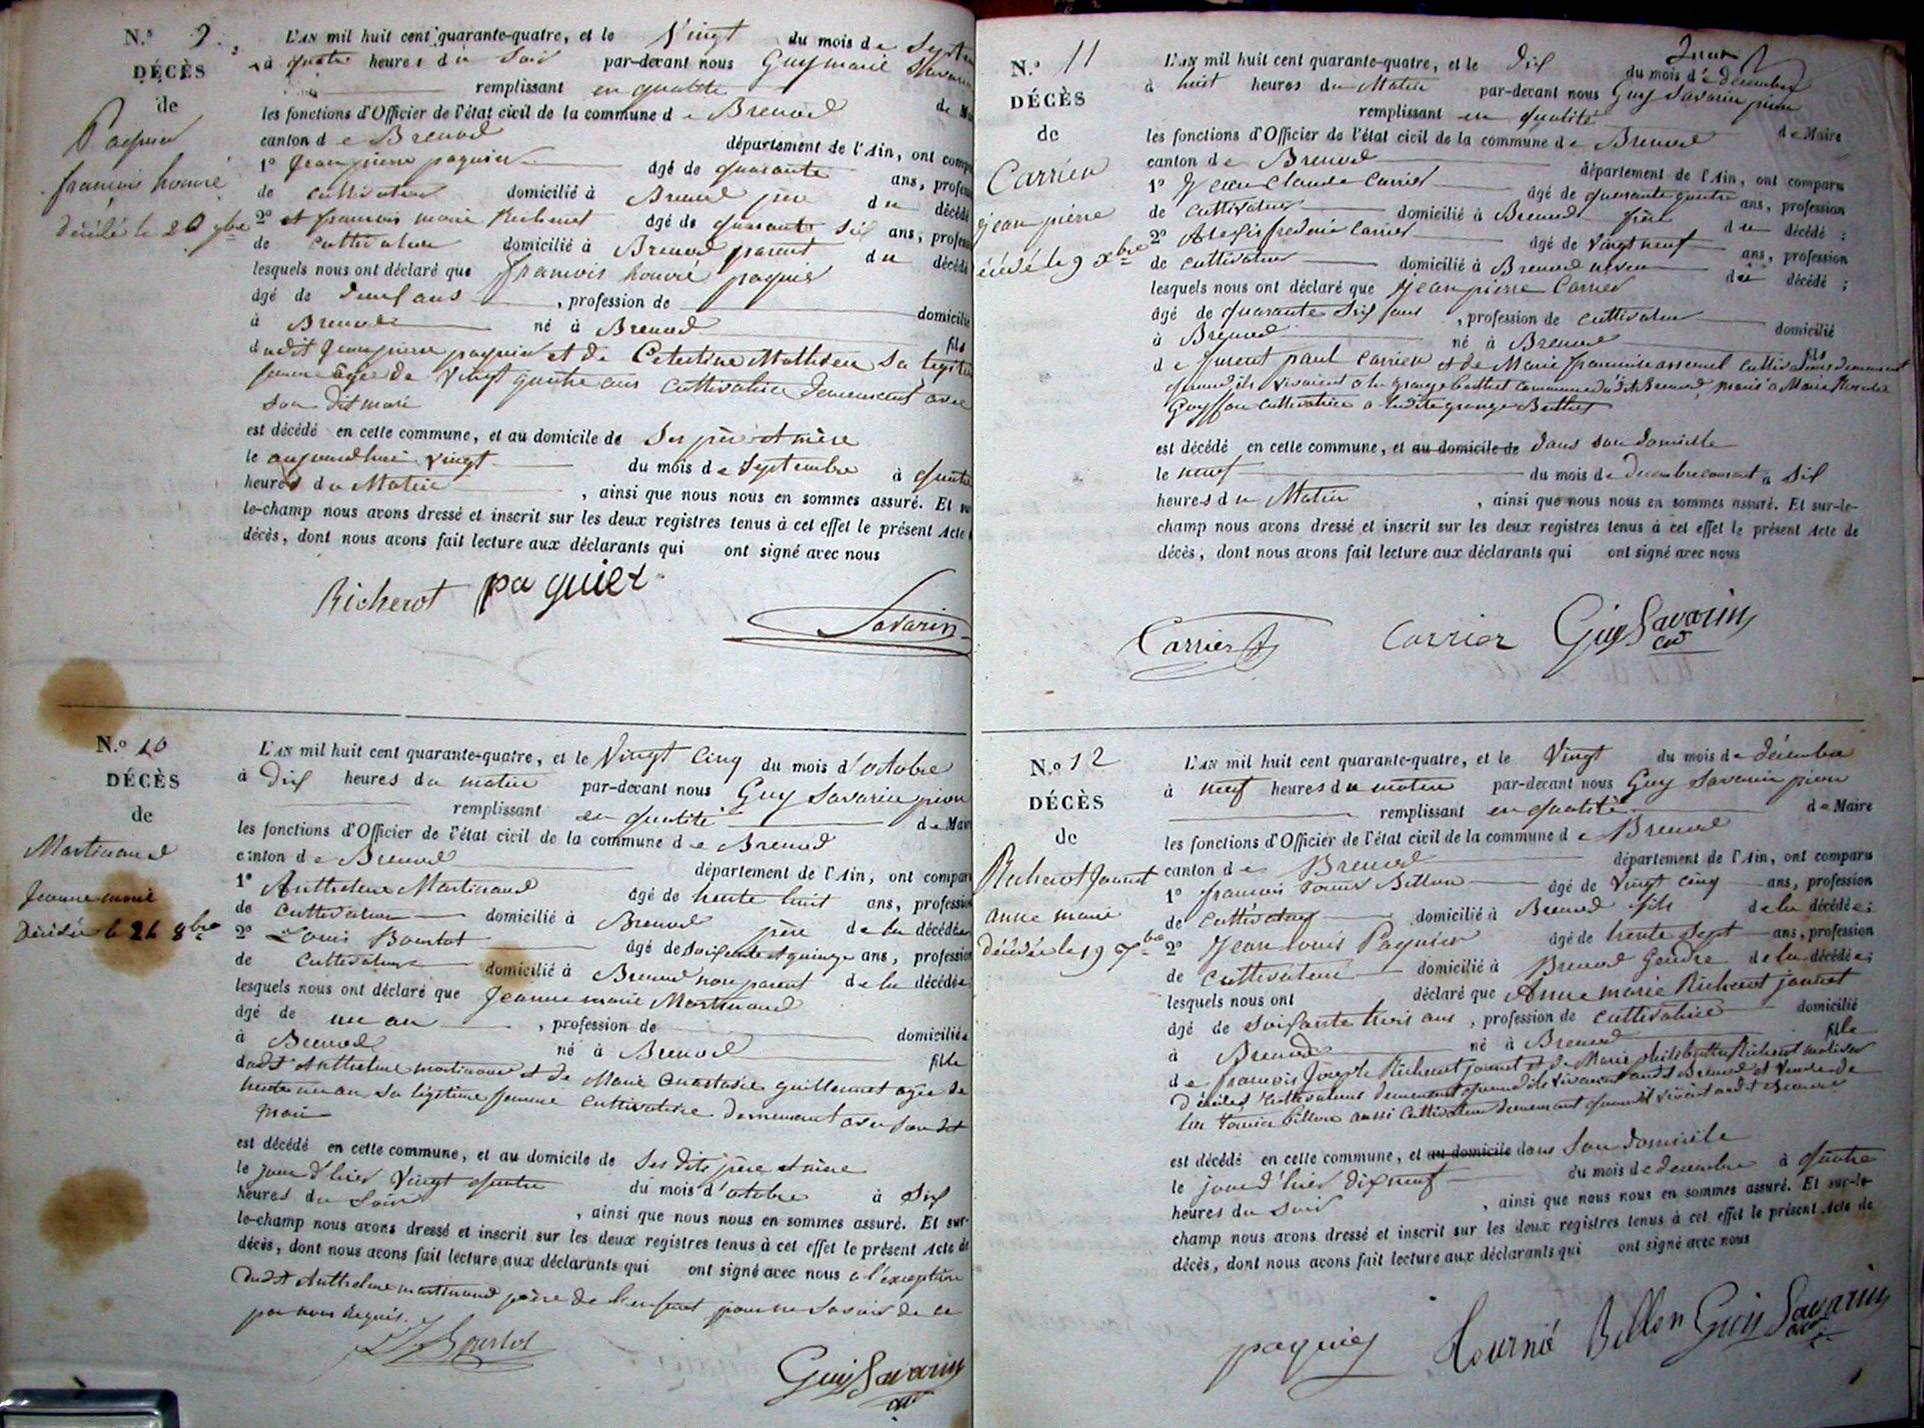 N.° 9.
DÉCÈS
de
Paquier
françois honoré
décédé le 20 7bre
L'AN mil huit cent quarante-quatre, et le Vingt du mois de Septem
à quatre heures du Soir par-devant nous Guy marie Savarin
remplissant en qualité de M
les fonctions d'Officier de l'état civil de la commune de Brenod
canton de Brenod département de l'Ain, ont comp
1° Jean pierre paquier âgé de quarante ans, profes
de cultivateur domicilié à Brenod père du décédé
2° et françois marie Richerot âgé de quarante six ans, profes
de cultivateur domicilié à Brenod parent du décédé
lesquels nous ont déclaré que françois honoré paquier
âgé de deux ans , profession de domicilié
à Brenod né à Brenod fils
dudit Jean pierre paquier et de Celestine Mathieu Sa legitim
femme âgée de Vingt quatre ans cultivatrice demeurant avec
son dit mari
est décédé en cette commune, et au domicile de Ses père et mère
le aujourdhui vingt du mois de Septembre à quatre
heures du Matin , ainsi que nous nous en sommes assuré. Et su
le-champ nous avons dressé et inscrit sur les deux registres tenus à cet effet le présent Acte
décès, dont nous avons fait lecture aux déclarants qui ont signé avec nous
Richerot paquier
Savarin
N.° 10
DÉCÈS
de
Martinand
Jeanne marie
Décédée le 24 8bre
L'AN mil huit cent quarante-quatre, et le Vingt Cinq du mois d'octobre
à Dix heures du matin par-devant nous Guy Savarin pion
remplissant en qualité de Mair
les fonctions d'Officier de l'état civil de la commune de Brenod
canton de Brenod département de l'Ain, ont compar
1° Anthelme Martinand âgé de trente huit ans, profession
de cultivateur domicilié à Brenod père de la décédée
2° Louis Bourlot âgé de Soixante et quinze ans, profession
de cultivateur domicilié à Brenod non parent de la décédée
lesquels nous ont déclaré que Jeanne marie Martinand
âgé de un an , profession de domiciliée
à Brenod né à Brenod fille
dudt Anthelme martinand et de Marie Anastasie guillermet agée de
trente un an Sa légitime femme cultivatrice demeurant avec Son dit
mari
est décédé en cette commune, et au domicile de Ses dits père et mère
le jour d'hier Vingt quatre du mois d'octobre à Six
heures du Soir , ainsi que nous nous en sommes assuré. Et sur-
le-champ nous avons dressé et inscrit sur les deux registres tenus à cet effet le présent Acte de
décès, dont nous avons fait lecture aux déclarants qui ont signé avec nous à l'exception
Dudt Anthelme martinand père de l'enfant pour ne Savoir de ce
par nous Requis.
L. Bourlot
Guy Savarin
N.° 11
DÉCÈS
de
Carrier
jean pierre
écédé le 9 xbre
L'AN mil huit cent quarante-quatre, et le dix du mois de décembre
à huit heures du Matin par-devant nous Guy Savarin pion
remplissant en qualité de Maire
les fonctions d'Officier de l'état civil de la commune de Brenod
canton de Brenod département de l'Ain, ont comparu
1° Jean Claude Carrier âgé de quarante quatre ans, profession
de cultivateur domicilié à Brenod frère du décédé ;
2° Alexis frederic Carrier âgé de Vingt neuf ans, profession
de cultivateur domicilié à Brenod neveu du décédé ;
lesquels nous ont déclaré que Jean pierre Carrier
âgé de quarante Six ans , profession de cultivateur domicilié
à Brenod né à Brenod fils
de furent paul Carrier et de Marie francoise assemel cultivateurs demeurant
quand ils vivaient a la grange Berthet Commune dudit Brenod, marié a Marie
Goyffon cultivatrice a ladite grange Berthet
est décédé en cette commune, et au domicile de dans Son domicile
le neuf du mois de decembre courant à Six
heures du Matin , ainsi que nous nous en sommes assuré. Et sur-le-
champ nous avons dressé et inscrit sur les deux registres tenus à cet effet le présent Acte de
décès, dont nous avons fait lecture aux déclarants qui ont signé avec nous
Carrier Carrier Guy Savarin
N.° 12
DÉCÈS
de
Richerot Jannet
anne marie
décédée le 19 xbre
L'AN mil huit cent quarante-quatre, et le Vingt du mois de décembre
à neuf heures du matin par-devant nous Guy Savarin pion
remplissant en qualité de Maire
les fonctions d'Officier de l'état civil de la commune de Brenod
canton de Brenod département de l'Ain, ont comparu
1° françois Tournier Billon âgé de Vingt cinq ans, profession
de cultivateur domicilié à Brenod fils de la décédée ;
2° Jean Louis Paquier âgé de trente Sept ans, profession
de cultivateur domicilié à Brenod Gendre de la décédée ;
lesquels nous ont déclaré que Anne marie Richerot jannet
âgé de Soixante trois ans , profession de cultivatrice domicilié
à Brenod né à Brenod fille
de françois Joseph Richerot jannet et de Marie philiberte Richerot
Décédés, Cultivateurs demeurant quand ils vivaient audt Brenod et Veuve de
Tournier billon aussi Cultivateur demeurant quand il vivait audt Brenod
est décédé en cette commune, et au domicile dans Son domicile
le jour d'hier dix neuf du mois de decembre à quatre
heures du Soir , ainsi que nous nous en sommes assuré. Et sur-le-
champ nous avons dressé et inscrit sur les deux registres tenus à cet effet le présent Acte de
décès, dont nous avons fait lecture aux déclarants qui ont signé avec nous
paquier Tournié Billon Guy Savarin